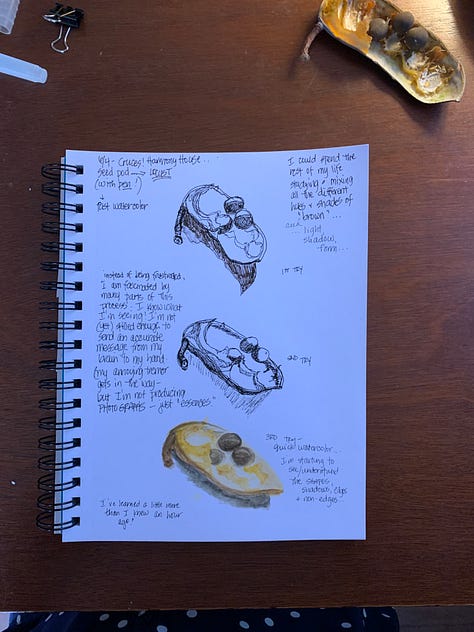 6/4 - Cruces' Harmony House...
seed pod → LOCUST
(with pen!)
↓
post watercolor
I could spend the
rest of my life
studying + mixing
all the different
hues + shades of
"brown"...
and
... light
shadow,
form...
1st try
instead of being frustrated,
I am fascinated by
many parts of this
process. I know what
I'm seeing! I'm not
(yet) skilled enough to
send an accurate
message from my
brain to my hand
(my annoying tremor
gets in the way -
but I'm not producing
photographs - just "essences."
2nd try
3rd try -
quick watercolor...
I'm starting to
see/understand
the shapes,
shadows, edges
+ non-edges.
I've learned a little more
than I knew an hour
ago!